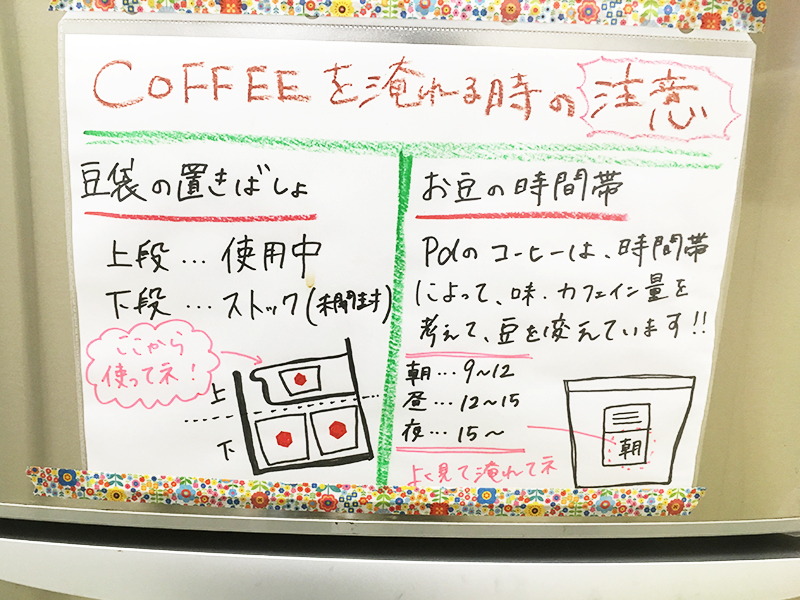 COFFEEを淹れる時の注意
豆袋の置きばしょ
上段…使用中
下段…ストック(未開封)
ここから
使ってネ!
上
下
お豆の時間帯
Pdのコーヒーは、時間帯
によって、味・カフェイン量を
考えて、豆を変えています!!
朝…9~12
昼…12~15
夜…15~
よく見て淹れてネ
朝